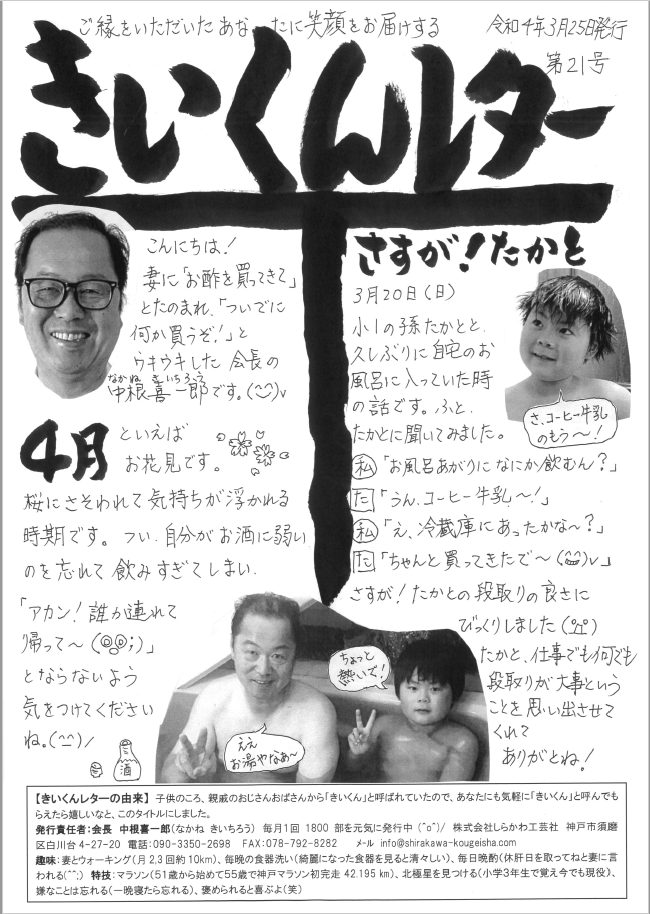 ご縁をいただいたあなたに笑顔をお届けする
令和4年3月25日発行
第21号
きいくんレター
こんにちは!
妻に「お酢を買ってきて」
とたのまれ、「ついでに
何か買うぞ!」と
ウキウキした 会長の
なかね きいちろう
中根 喜一郎です。(^^)v
4月
といえば
お花見です。
桜にさそわれて気持ちが浮かれる
時期です。つい、自分がお酒に弱い
のを忘れて飲みすぎてしまい、
「アカン!誰か連れて
帰って〜(@@;)」
とならないよう
気をつけてください
ね。(^^)/
酒
さすが!たかと
3月20日(日)
小1の孫たかとと、
久しぶりに自宅のお
風呂に入っていた時
の話です。ふと、
たかとに聞いてみました。
さ、コーヒー牛乳
のもう〜!
私「お風呂あがりになにか飲むん?」
た「うん、コーヒー牛乳〜!」
私「え、冷蔵庫にあったかな〜?」
た「ちゃんと買ってきたで〜(^^)v」
さすが!たかとの段取りの良さに
びっくりしました(°o°)
たかと、仕事でも何でも
段取りが大事という
ことを思い出させて
くれて
ありがとね!
ちょっと
熱いで!
ええ
お湯やなあ〜
【きいくんレターの由来】 子供のころ、親戚のおじさんおばさんから「きいくん」と呼ばれていたので、あなたにも気軽に「きいくん」と呼んでも
らえたら嬉しいなと、このタイトルにしました。
発行責任者:会長 中根喜一郎(なかね きいちろう) 毎月1回 1800 部を元気に発行中 (^o^)/ 株式会社しらかわ工芸社 神戸市須磨
区白川台 4-27-20 電話:090-3350-2698 FAX:078-792-8282 メール info@shirakawa-kougeisha.com
趣味:妻とウォーキング(月 2,3 回約 10km)、毎晩の食器洗い(綺麗になった食器を見ると清々しい)、毎日晩酌(休肝日を取ってねと妻に言
われる(^^;) 特技:マラソン(51歳から始めて55歳で神戸マラソン初完走 42.195 km)、北極星を見つける(小学3年生で覚え今でも現役)、
嫌なことは忘れる(一晩寝たら忘れる)、褒められると喜ぶよ(笑)